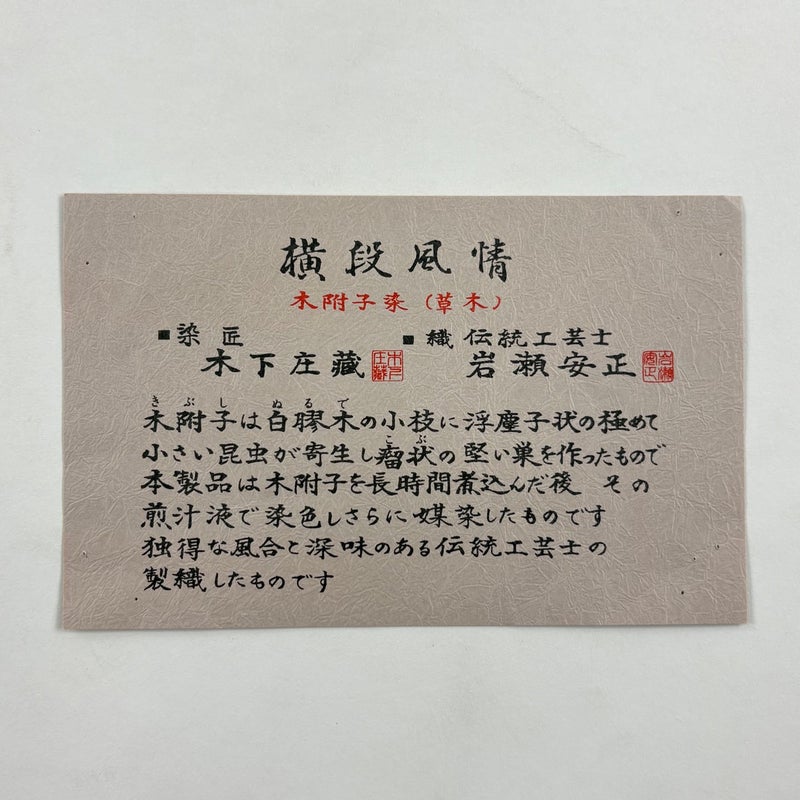 横段風情
木附子染（草木）
■染匠
木下庄藏
■織伝統工芸士
岩瀬安正
きぶし ぬるで
木附子は白膠木の小枝に浮塵子状の極めて
こぶ
小さい昆虫が寄生し瘤状の堅い巣を作ったもので
本製品は木附子を長時間煮込んだ後 その
煎汁液で染色しさらに媒染したものです
独得な風合と深味のある伝統工芸士の
製織したものです